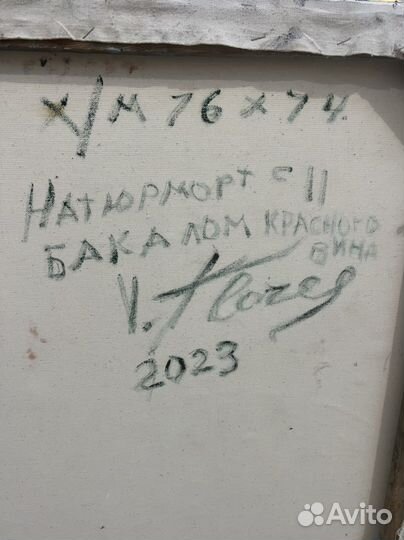 х/м 76 х 74.
НАТЮРМОРТ С
БАКАЛОМ КРАСНОГО
ВИНА
2023
Avito